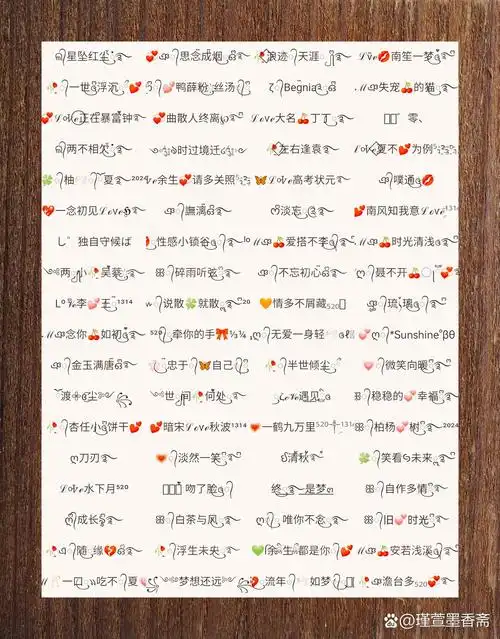 星坠红尘 💕思念成烟 🥀浪迹天涯 Lѷe💋南笙一梦
🥀一世浮沉💕 💕鸭薛粉丝汤 Begnia 𝓜失宠🍒的猫
𝓛𝓸𝓿𝓮正在暴富钟 💕曲散人终离 𝓛𝓸𝓿𝓮大名🍒丁丁 零、
两不相欠 时过境迁 🥀左右逢袁 𝓛𝓸𝓿𝓮夏不💕为例
🍀柚夏²⁰²⁴ 余生💕请多关照 🦋𝓛𝓸𝓿𝓮高考状元 噗通💋
💖一念初见𝓛𝓸𝓿𝓮 憮漓 淡忘 💕南风知我意𝓛𝓸𝓿𝓮¹³¹⁴
独自守候ば 性感小锁谷 𝓜爱搭不李 𝓜🍒时光清浅
两小🥀吴 ꕥ碎雨听 不忘初心 聂不开💕
L⁰李💕王¹³¹⁴ 说散🍀就散²⁰ 🧡情多不屑藏520 ꕥ琉璃
𝓜念你🍒如初 ⁵²⁰牵你的手🎀⅓¼ ღ无爱一身轻 💞ღ*Sunshineβθ
金玉满唐 忠于🦋自己 🥀半世倾尘 💗微笑向暖
渡尘 世间🥀何处 𝓛𝓸𝓿𝓮遇见 ꕥ稳稳的💕幸福
🥀杏任小饼干💕 💕暗宋𝓛𝓸𝓿𝓮秋波¹³¹⁴ 一鹤九万里⁵²⁰¹³¹⁴ ꕥ柏杨💕树²⁰²⁴
ღ刀刃 淡然一笑 清秋 🍀笑看未来
𝓛𝓸𝓿𝓮水下月⁵²⁰ 吻了脸 终是梦ღ ꕥ自作多情
ꕥ成长 ꕥ白茶与风 ღ唯你不念 ꕥ旧💕时光
🥀随缘💔 🥀浮生未央 💚余生都是你💕 ꕥ💕安若浅溪
🥀一口吃不夏 梦想还远 流年🥀如梦 🥀澹台多520💗
瑾萱墨香斋